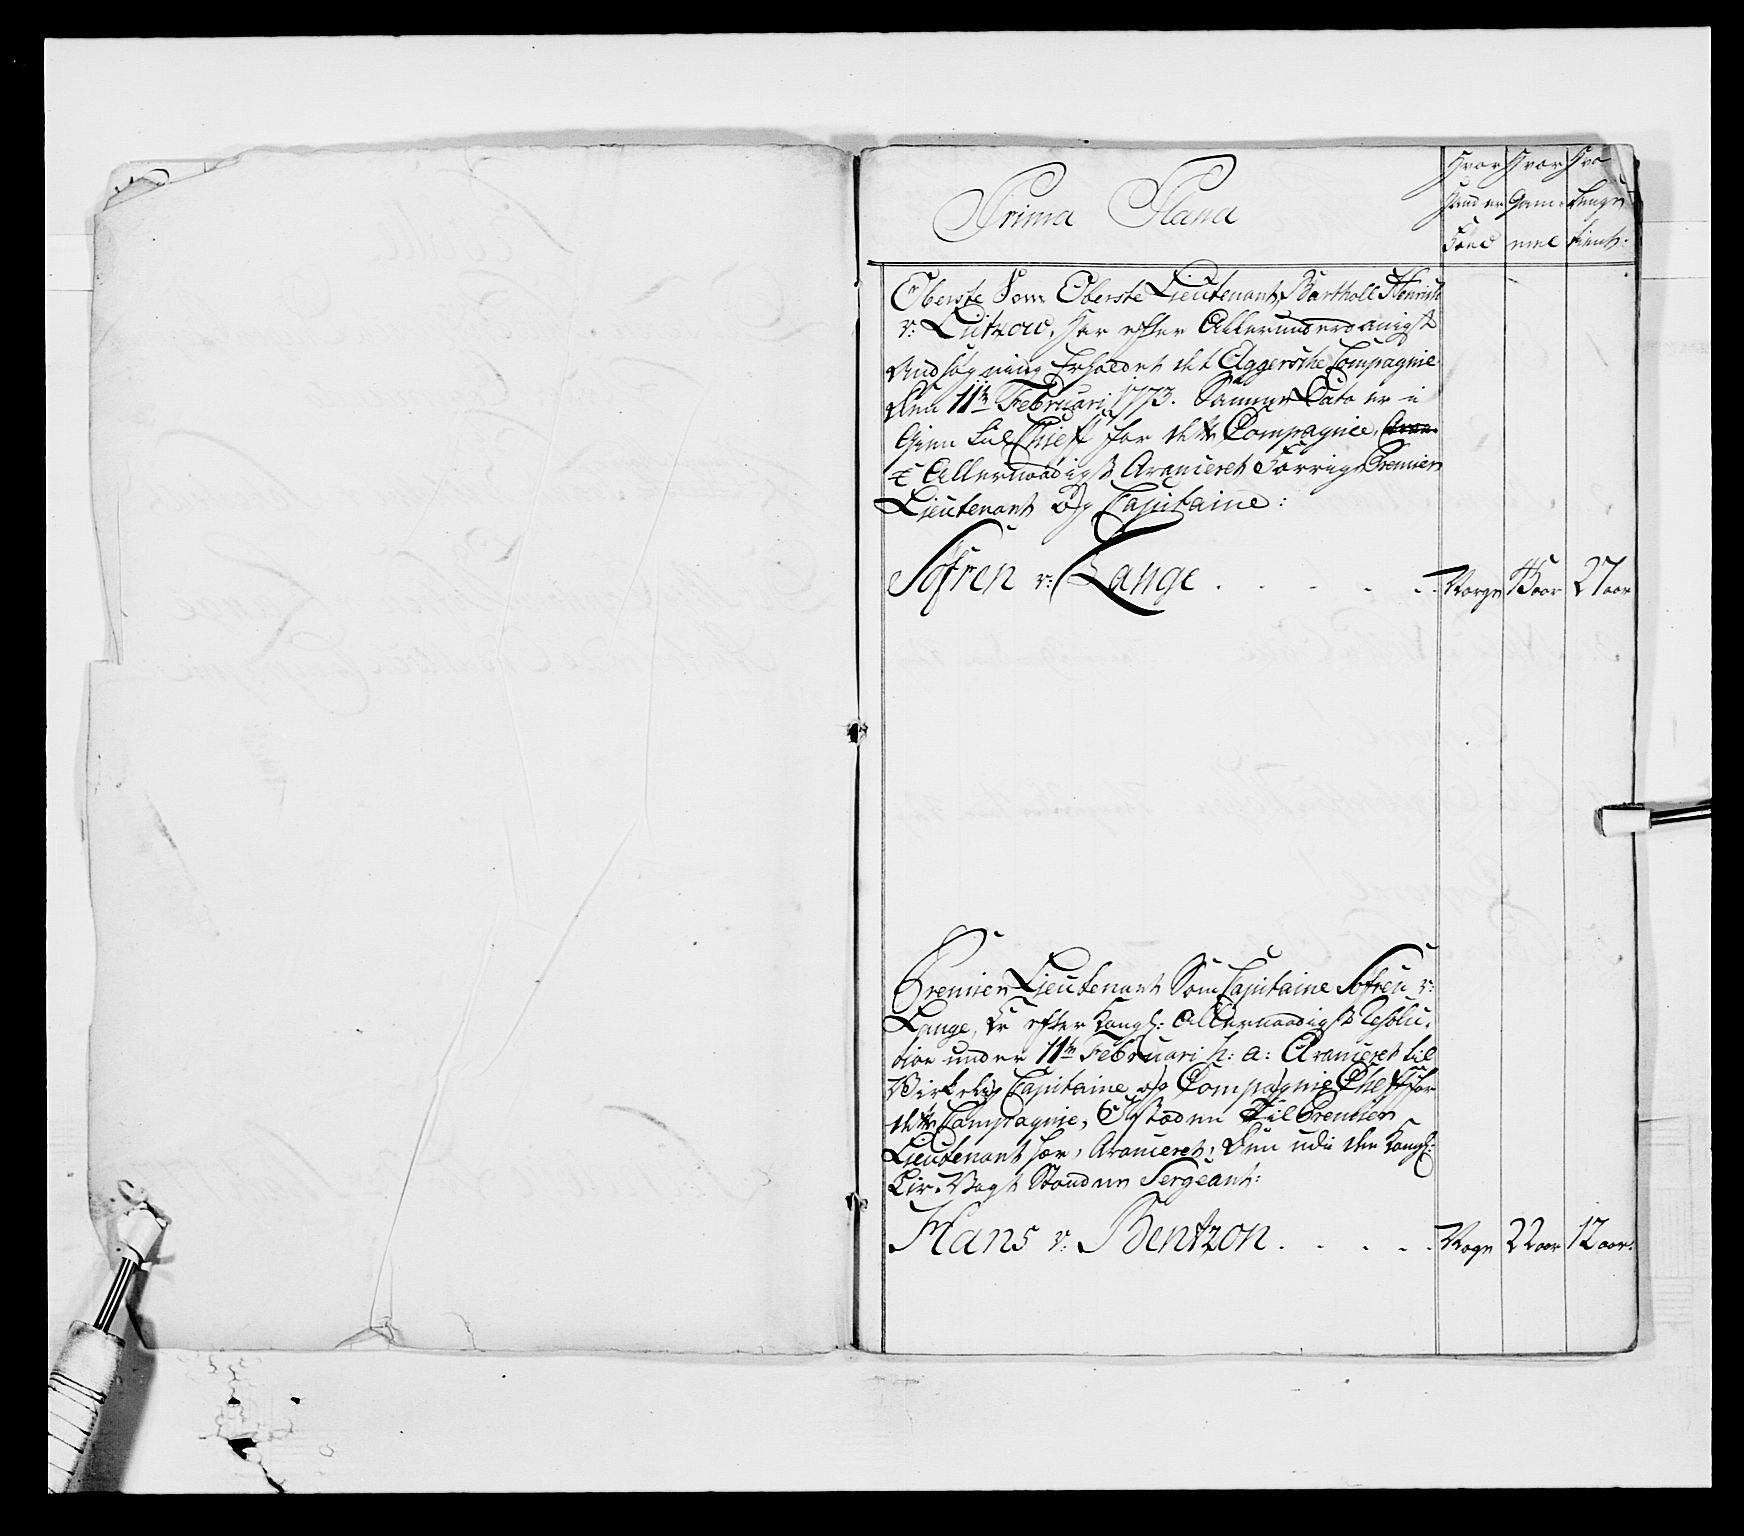 Prima Plana
Hvor Hvor Hvor
hand er Gam- Længe
Fød mel tient:
Oberste Som Oberste Lieutenant Bartholl Henrich
v: Lützow, har efter Allerunderdanigst
Ansøgning Erholdet det Aggersche Compagnie
den 11te Februari 1773. Samme Dato er i
Gien til Chef for dette Compagnie,
Allernaadigst Avanceret Forrige Premier
Lieutenant og Capitaine:
Søfren v: Lange . . . . . . Norge 45 aar 27 aar
Premier Lieutenant Som Capitaine Søfren v:
Lange, Er efter Kongl: Allernaadigst Resolu-
tion under 11te Februari h: a: Avanceret til
Virkelig Capitaine og Compagnie Chef for
dette Compagnie, I steden til Premier
Lieutenant her, Avanceret, den udi den Kongl:
Liv-Vagt Staaende Sergeant:
Hans v: Bentzon . . . . . Norge 22 aar 12 aar.